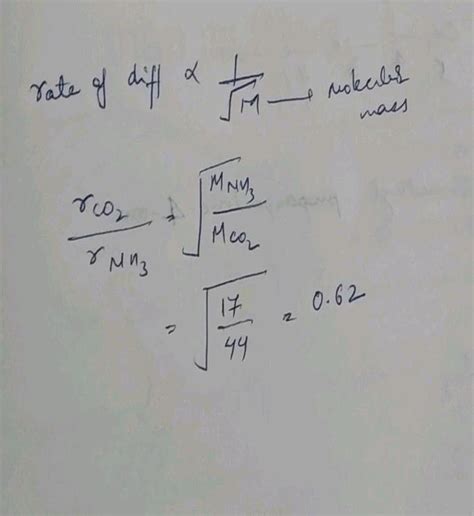 rate of diff ∝ 1/√M → molecular mass
rCO₂/rNH₃ = √(MNH₃/MCO₂)
= √(17/44) = 0.62